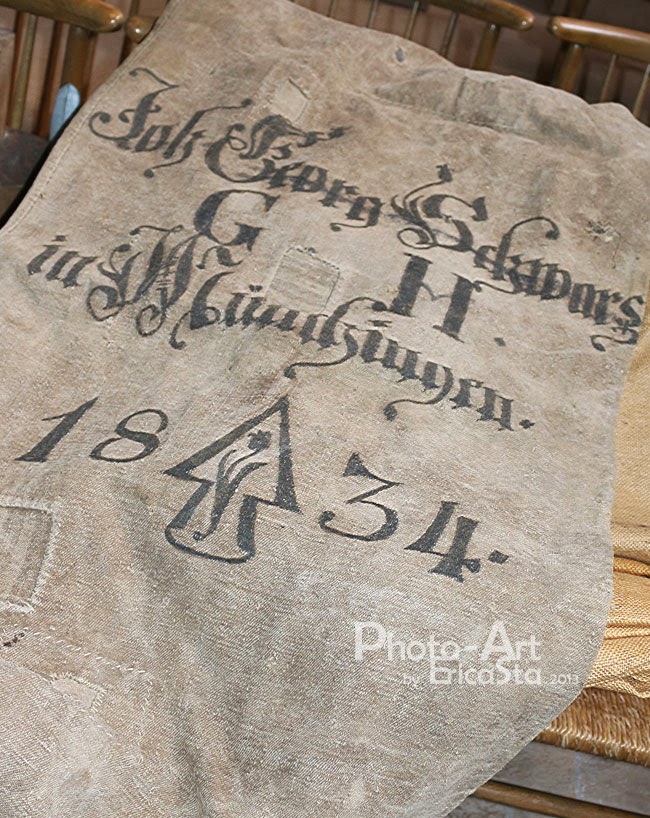 Joh Georg Schwarz
G H.
in Münchingen.
18 34.
Photo-Art
by EricaSta.2013